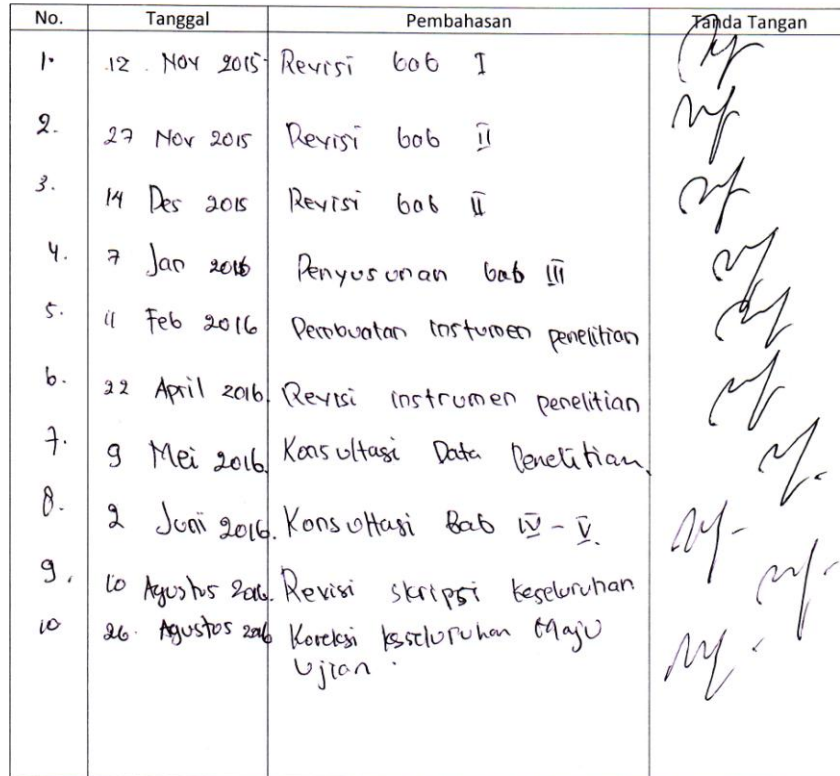 No. Tanggal Pembahasan Tanda Tangan
1. 12 Nov 2015 Revisi bab I
2. 27 Nov 2015 Revisi bab II
3. 14 Des 2015 Revisi bab II
4. 7 Jan 2016 Penyusunan bab III
5. 11 Feb 2016 Pembuatan instumen penelitian
6. 22 April 2016. Revisi instrumen penelitian
7. 9 Mei 2016. Konsultasi Data Penelitian.
8. 2 Juni 2016. Konsultasi Bab IV - V.
9. 10 Agustus 2016. Revisi skripsi keseluruhan
10 26. Agustus 2016 Koreksi keseluruhan Maju
Ujian.